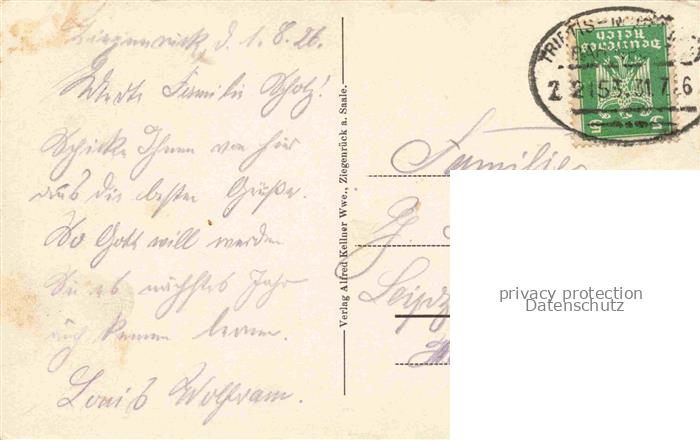 Ziegenrück d. 1.8.26.
Werte Familie Scholz!
Schicke Ihnen von hier
aus die besten Grüße.
So Gott will werden
Sie es nächstes Jahr
auch kennen lernen.
Louis Wolfram.
Verlag Alfred Kellner Wwe., Ziegenrück a. Saale.
TRIPTIS
Deutsches
Reich
5 5
Familie
Leipz
privacy protection
Datenschutz